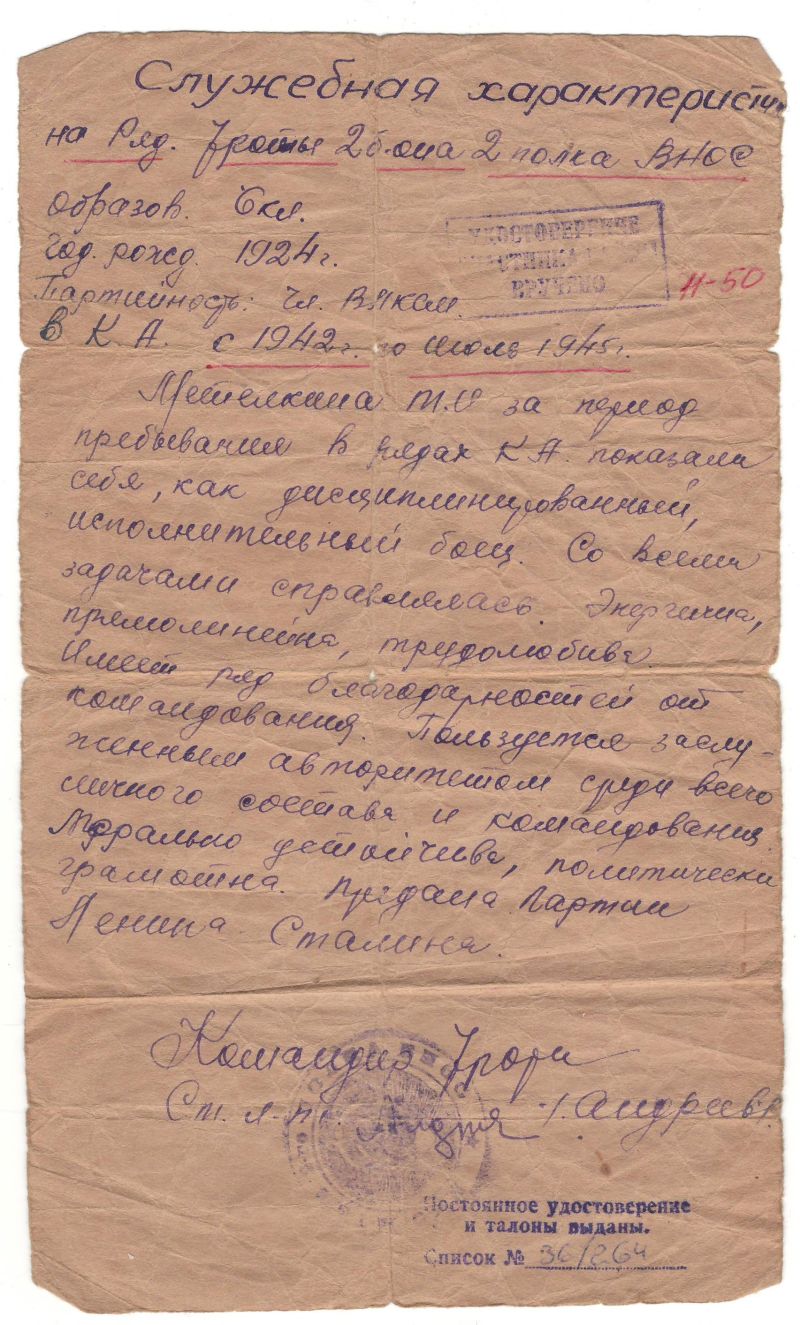 Служебная характеристи
на Ряд. 7 роты 2 б-она 2 полка ВНОС
образов. 6 кл.
год. рожд. 1924 г.
Партийность: чл. ВЛКСМ.
в К. А. с 1942 г. по Июль 1945 г.
УДОСТОВЕРЕНИЕ
ВРУЧЕНО
11-50
Метелкина М.И за период
пребывания в рядах К.А. показала
себя, как дисциплинированный,
исполнительный боец. Со всеми
задачами справлялась. Энергична,
прямолинейна, трудолюбива.
Имеет ряд благодарностей от
командования. Пользуется заслу-
женным авторитетом среди всего
личного состава и командования.
Морально устойчива, политически
грамотна. Предана Партии
Ленина-Сталина.
Командир 7 роты
Ст. л-т. /. Андреев /.
Постоянное удостоверение
и талоны выданы.
Список № 36/264